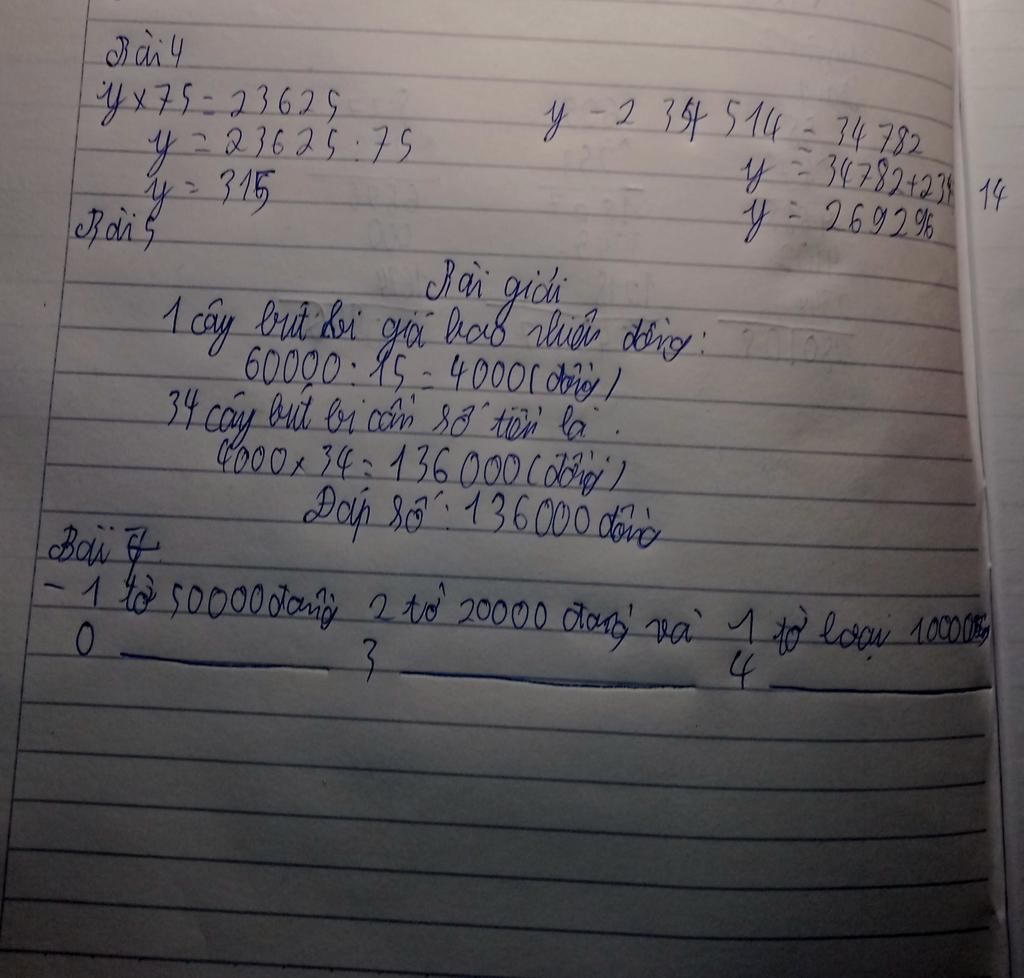 Bài 4
y x 75 = 23625
y = 23625 : 75
y = 315
y - 234 514 = 34 782
y = 34782 + 234 14
y = 269296
Bài 5
Bài giải
1 cây bút bi giá bao nhiêu đồng:
60000 : 15 = 4000 (đồng)
34 cây bút bi cần số tiền là.
4000 x 34 = 136 000 (đồng)
Đáp số: 136000 đồng
Bài 7
- 1 tờ 50000 đồng 2 tờ 20000 đồng và 1 tờ loại 10000
0 3 4